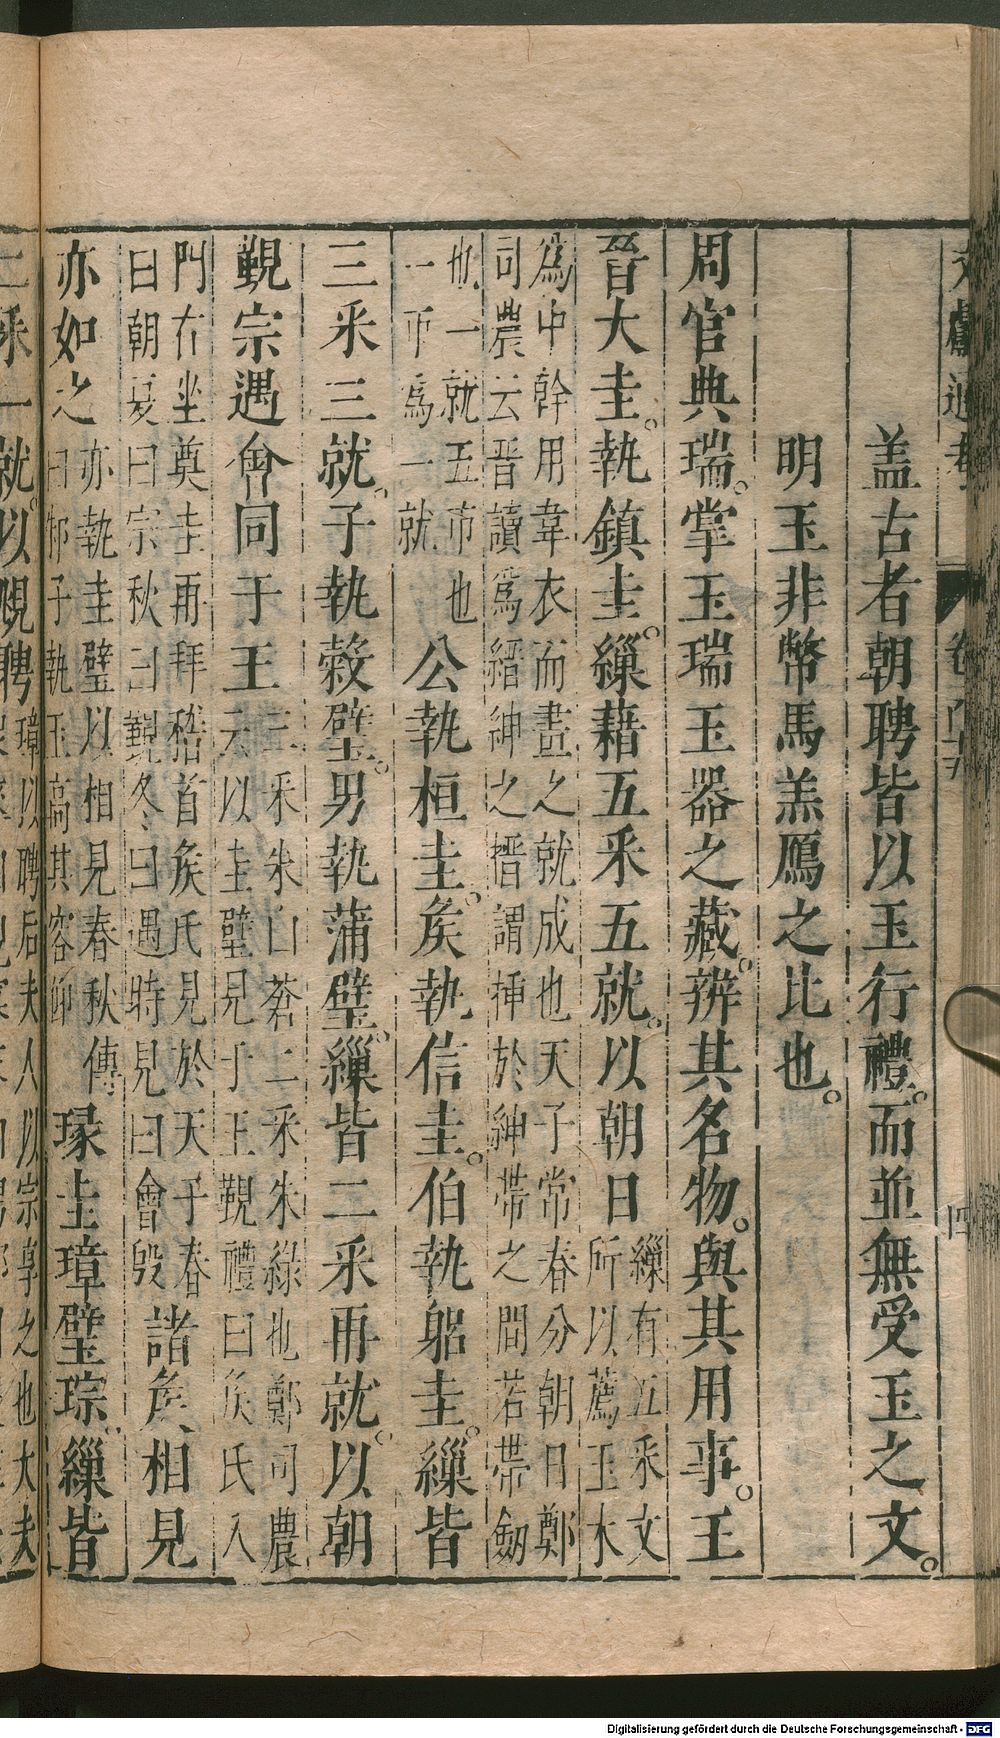 蓋古者朝聘皆以玉行禮而並無受玉之文
明玉非幣馬羔鴈之比也
周官典瑞掌玉瑞玉器之藏辨其名物與其用事王
晉大圭執鎮圭繅藉五采五就以朝日繅有五采文所以薦玉木
為中幹用韋衣而畫之就成也天子常春分朝日鄭
司農云晉讀為縉紳之搢謂揷於紳帶之間若帶劒
也一就五帀也
一帀為一就
公執桓圭矦執信圭伯執躬圭繅皆
三采三就子執榖璧男執蒲璧繅皆二采再就以朝
覲宗遇會同于王三采朱白蒼二采朱綠也鄭司農云以圭璧見于王覲禮曰矦氏入
門右坐奠圭再拜稽首矦氏見於天子春
曰朝夏曰宗秋曰覲冬曰遇時見曰會殷
諸矦相見
亦如之亦執圭璧以相見春秋傳曰邾子執玉高其容仰瑑圭璋璧琮繅皆
二采一就以覜聘
璋以聘后夫人以宗享之也大夫
Digitalisierung gefördert durch die Deutsche Forschungsgemeinschaft - DFG